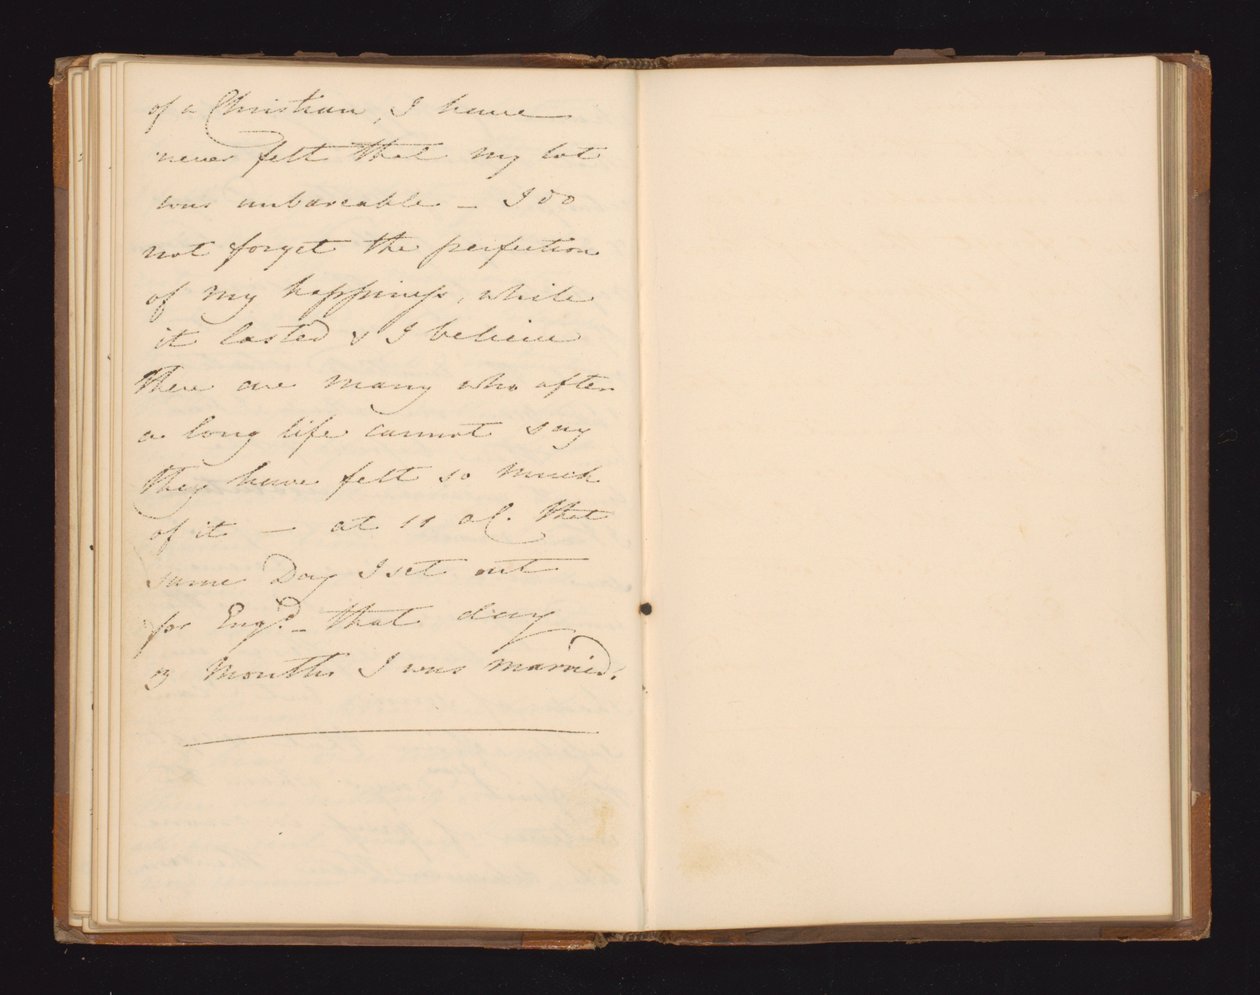 of a Christian, I have
never felt that my lot
was unbareable – I do
not forget the perfection
of my happiness, while
it lasted & I believe
there are many who after
a long life cannot say
they have felt so much
of it – at 11 oC. that
same Day I set out
for Engd. – that day
3 months I was married.